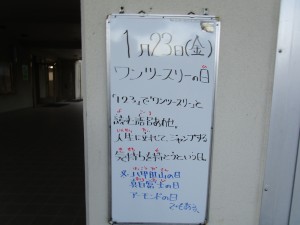 1月23日(金)
ワンツースリーの日
「123」で「ワンツースリー」と
読む語呂あわせ。
人生に対して、ジャンプする
気持ちを持とうという日。
又、八甲田山の日
アーモンドの日
でもある。